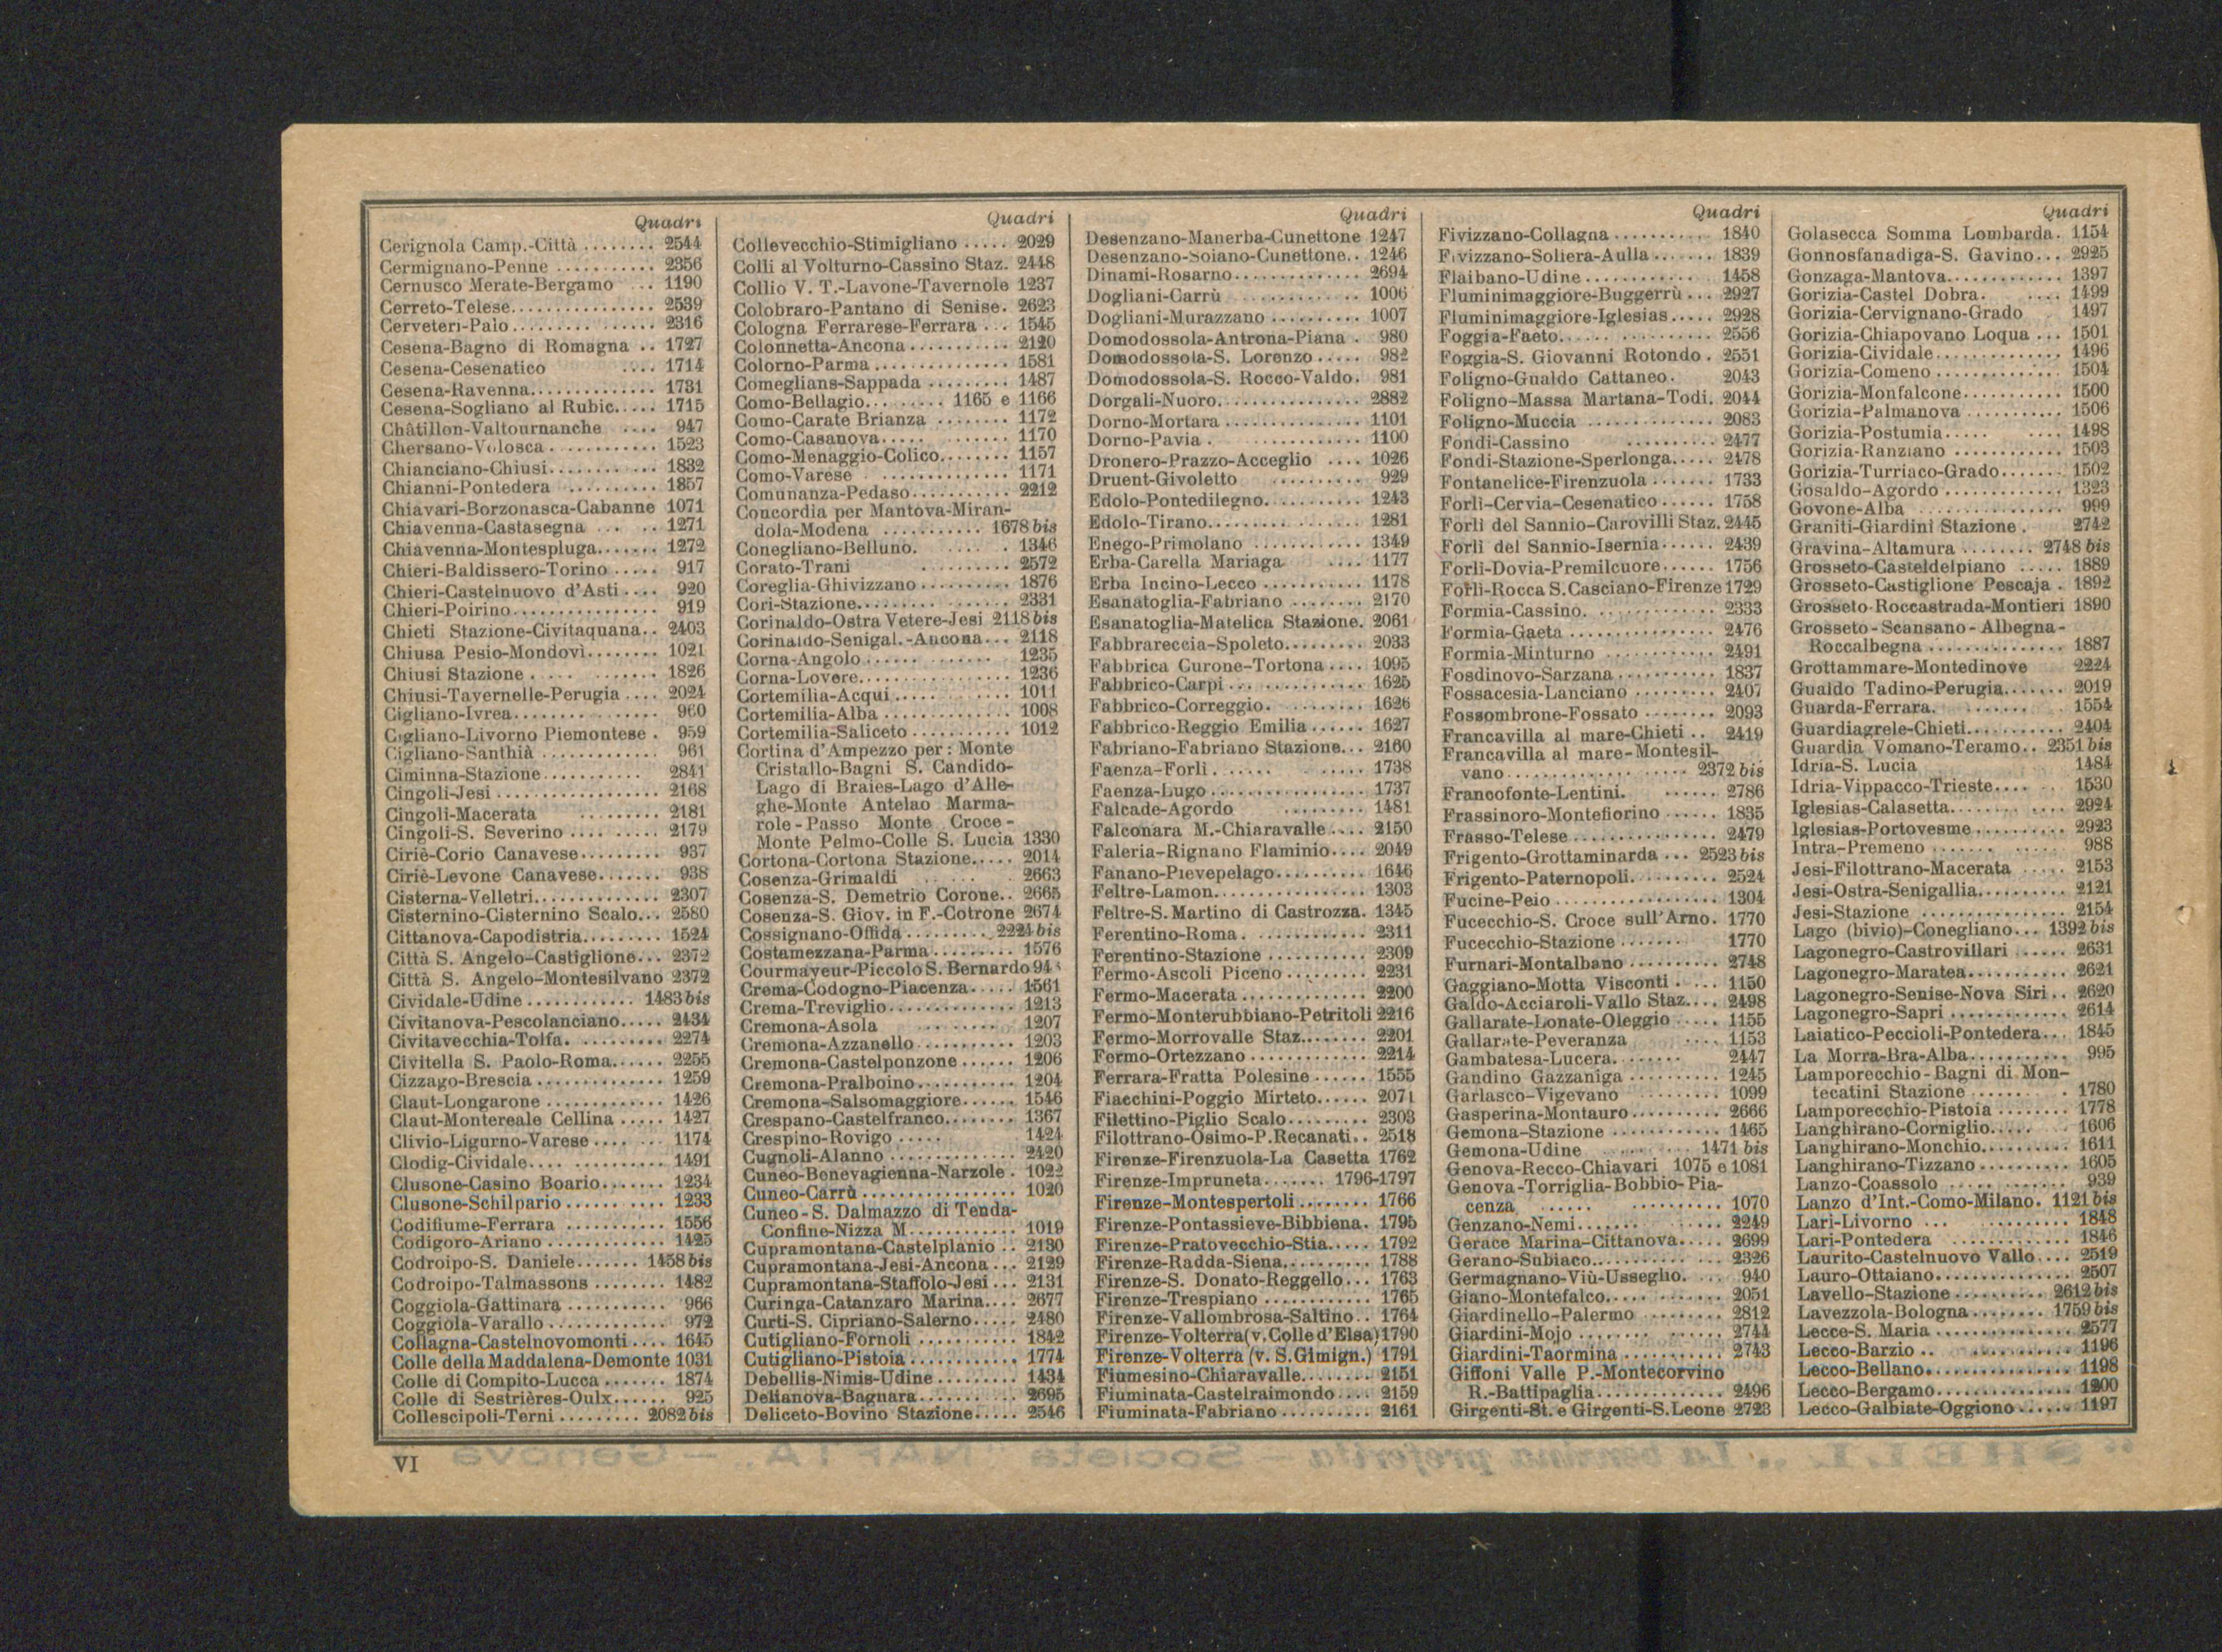 Quadri
Cerignola Camp.-Città ........ 2544
Cermignano-Penne ........... 2356
Cernusco Merate-Bergamo ... 1190
Cerreto-Telese................ 2539
Cerveteri-Palo................ 2316
Cesena-Bagno di Romagna .. 1727
Cesena-Cesenatico .... 1714
Cesena-Ravenna.............. 1731
Cesena-Sogliano al Rubic..... 1715
Châtillon-Valtournanche .... 947
Chersano-Volosca............ 1523
Chianciano-Chiusi............ 1832
Chianni-Pontedera .......... 1857
Chiavari-Borzonasca-Cabanne 1071
Chiavenna-Castasegna ...... 1271
Chiavenna-Montespluga....... 1272
Chieri-Baldissero-Torino ..... 917
Chieri-Castelnuovo d'Asti .... 920
Chieri-Poirino................ 919
Chieti Stazione-Civitaquana.. 2403
Chiusa Pesio-Mondovì........ 1021
Chiusi Stazione ............. 1826
Chiusi-Tavernelle-Perugia .... 2024
Cigliano-Ivrea................ 960
Cigliano-Livorno Piemontese . 959
Cigliano-Santhià ............ 961
Ciminna-Stazione.......... 2841
Cingoli-Jesi ................. 2168
Cingoli-Macerata ......... 2181
Cingoli-S. Severino ......... 2179
Ciriè-Corio Canavese......... 937
Ciriè-Levone Canavese....... 938
Cisterna-Velletri.............. 2307
Cisternino-Cisternino Scalo... 2580
Cittanova-Capodistria......... 1524
Città S. Angelo-Castiglione... 2372
Città S. Angelo-Montesilvano 2372
Cividale-Udine ............ 1483 bis
Civitanova-Pescolanciano..... 2434
Civitavecchia-Tolfa........... 2274
Civitella S. Paolo-Roma...... 2255
Cizzago-Brescia .............. 1259
Claut-Longarone ............. 1426
Claut-Montereale Cellina ..... 1427
Clivio-Ligurno-Varese ....... 1174
Clodig-Cividale.............. 1491
Clusone-Casino Boario....... 1234
Clusone-Schilpario ........... 1233
Codifiume-Ferrara ........... 1556
Codigoro-Ariano ............. 1425
Codroipo-S. Daniele....... 1458 bis
Codroipo-Talmassons ........ 1482
Coggiola-Gattinara ........... 966
Coggiola-Varallo ............. 972
Collagna-Castelnovomonti .... 1645
Colle della Maddalena-Demonte 1031
Colle di Compito-Lucca ....... 1874
Colle di Sestrières-Oulx...... 925
Collescipoli-Terni ......... 2082 bis
Quadri
Collevecchio-Stimigliano ..... 2029
Colli al Volturno-Cassino Staz. 2448
Collio V. T.-Lavone-Tavernole 1237
Colobraro-Pantano di Senise. 2623
Cologna Ferrarese-Ferrara ... 1545
Colonnetta-Ancona........... 2120
Colorno-Parma ............... 1581
Comeglians-Sappada ......... 1487
Como-Bellagio......... 1165 e 1166
Como-Carate Brianza ........ 1172
Como-Casanova............ 1170
Como-Menaggio-Colico........ 1157
Como-Varese .............. 1171
Comunanza-Pedaso........... 2212
Concordia per Mantova-Miran-
dola-Modena ........... 1678 bis
Conegliano-Belluno........ 1346
Corato-Trani .......... 2572
Coreglia-Ghivizzano .......... 1876
Cori-Stazione................ 2331
Corinaldo-Ostra Vetere-Jesi 2118 bis
Corinaldo-Senigal.-Ancona... 2118
Corna-Angolo ............. 1235
Corna-Lovere................. 1236
Cortemilia-Acqui ............. 1011
Cortemilia-Alba .............. 1008
Cortemilia-Saliceto ........... 1012
Cortina d'Ampezzo per: Monte
Cristallo-Bagni S. Candido-
Lago di Braies-Lago d'Alle-
ghe-Monte Antelao Marma-
role - Passo Monte Croce -
Monte Pelmo-Colle S. Lucia 1330
Cortona-Cortona Stazione..... 2014
Cosenza-Grimaldi ..... 2663
Cosenza-S. Demetrio Corone.. 2665
Cosenza-S. Giov. in F.-Cotrone 2674
Cossignano-Offida ......... 2224 bis
Costamezzana-Parma ......... 1576
Courmayeur-Piccolo S. Bernardo
Crema-Codogno-Piacenza..... 1561
Crema-Treviglio.............. 1213
Cremona-Asola ......... 1207
Cremona-Azzanello........... 1203
Cremona-Castelponzone ...... 1206
Cremona-Pralboino........... 1204
Cremona-Salsomaggiore...... 1546
Crespano-Castelfranco........ 1367
Crespino-Rovigo ..... 1424
Cugnoli-Alanno .............. 2420
Cuneo-Benevagienna-Narzole . 1022
Cuneo-Carrù ................. 1020
Cuneo - S. Dalmazzo di Tenda-
Confine-Nizza M............ 1019
Cupramontana-Castelplanio .. 2130
Cupramontana-Jesi-Ancona... 2129
Cupramontana-Staffolo-Jesi ... 2131
Curinga-Catanzaro Marina.... 2677
Curti-S. Cipriano-Salerno..... 2480
Cutigliano-Fornoli ........... 1842
Cutigliano-Pistoia ............ 1774
Debellis-Nimis-Udine ......... 1434
Delianova-Bagnara........... 2695
Deliceto-Bovino Stazione..... 2546
Quadri
Desenzano-Manerba-Cunettone 1247
Desenzano-Soiano-Cunettone.. 1246
Dinami-Rosarno.............. 2694
Dogliani-Carrù ............. 1006
Dogliani-Murazzano .......... 1007
Domodossola-Antrona-Piana . 980
Domodossola-S. Lorenzo ..... 982
Domodossola-S. Rocco-Valdo. 981
Dorgali-Nuoro................ 2882
Dorno-Mortara ............... 1101
Dorno-Pavia . ............. 1100
Dronero-Prazzo-Acceglio .... 1026
Druent-Givoletto .......... 929
Edolo-Pontedilegno........... 1243
Edolo-Tirano................. 1281
Enego-Primolano ............ 1349
Erba-Carella Mariaga .... 1177
Erba Incino-Lecco ........... 1178
Esanatoglia-Fabriano ........ 2170
Esanatoglia-Matelica Stazione. 2061
Fabbrareccia-Spoleto......... 2033
Fabbrica Curone-Tortona.... 1095
Fabbrico-Carpi .............. 1625
Fabbrico-Correggio.......... 1626
Fabbrico-Reggio Emilia ...... 1627
Fabriano-Fabriano Stazione... 2160
Faenza-Forlì............. 1738
Faenza-Lugo ................. 1737
Falcade-Agordo ......... 1481
Falconara M.-Chiaravalle.... 2150
Faleria-Rignano Flaminio.... 2049
Fanano-Pievepelago.......... 1646
Feltre-Lamon................ 1303
Feltre-S. Martino di Castrozza. 1345
Ferentino-Roma. ............ 2311
Ferentino-Stazione ........... 2309
Fermo-Ascoli Piceno ......... 2231
Fermo-Macerata .............. 2200
Fermo-Monterubbiano-Petritoli 2216
Fermo-Morrovalle Staz........ 2201
Fermo-Ortezzano ............. 2214
Ferrara-Fratta Polesine ...... 1555
Fiacchini-Poggio Mirteto...... 2071
Filettino-Piglio Scalo......... 2303
Filottrano-Osimo-P. Recanati.. 2518
Firenze-Firenzuola-La Casetta 1762
Firenze-Impruneta....... 1796-1797
Firenze-Montespertoli ........ 1766
Firenze-Pontassieve-Bibbiena. 1795
Firenze-Pratovecchio-Stia..... 1792
Firenze-Radda-Siena.......... 1788
Firenze-S. Donato-Reggello... 1763
Firenze-Trespiano ............ 1765
Firenze-Vallombrosa-Saltino.. 1764
Firenze-Volterra (v. Colle d'Elsa) 1790
Firenze-Volterra (v. S. Gimign.) 1791
Fiumesino-Chiaravalle........ 2151
Fiuminata-Castelraimondo.... 2159
Fiuminata-Fabriano .......... 2161
Quadri
Fivizzano-Collagna .......... 1840
Fivizzano-Soliera-Aulla....... 1839
Flaibano-Udine ............ 1458
Fluminimaggiore-Buggerrù ... 2927
Fluminimaggiore-Iglesias..... 2928
Foggia-Faeto................ 2556
Foggia-S. Giovanni Rotondo . 2551
Foligno-Gualdo Cattaneo. 2043
Foligno-Massa Martana-Todi. 2044
Foligno-Muccia .............. 2083
Fondi-Cassino .......... 2477
Fondi-Stazione-Sperlonga..... 2478
Fontanelice-Firenzuola ....... 1733
Forlì-Cervia-Cesenatico ...... 1758
Forlì del Sannio-Carovilli Staz. 2445
Forlì del Sannio-Isernia...... 2439
Forlì-Dovia-Premilcuore...... 1756
Forlì-Rocca S. Casciano-Firenze 1729
Formia-Cassino............. 2333
Formia-Gaeta ................ 2476
Formia-Minturno ............ 2491
Fosdinovo-Sarzana ........... 1837
Fossacesia-Lanciano ......... 2407
Fossombrone-Fossato ........ 2093
Francavilla al mare-Chieti .. 2419
Francavilla al mare-Montesil-
vano................... 2372 bis
Francofonte-Lentini. ...... 2786
Frassinoro-Montefiorino ...... 1835
Frasso-Telese ................ 2479
Frigento-Grottaminarda ... 2523 bis
Frigento-Paternopoli.......... 2524
Fucine-Peio .................. 1304
Fucecchio-S. Croce sull'Arno. 1770
Fucecchio-Stazione ....... 1770
Furnari-Montalbano .......... 2748
Gaggiano-Motta Visconti .... 1150
Galdo-Acciaroli-Vallo Staz.... 2498
Gallarate-Lonate-Oleggio ..... 1155
Gallarate-Peveranza .... 1153
Gambatesa-Lucera........ 2447
Gandino Gazzaniga .......... 1245
Garlasco-Vigevano ......... 1099
Gasperina-Montauro.......... 2666
Gemona-Stazione ............ 1465
Gemona-Udine ......... 1471 bis
Genova-Recco-Chiavari 1075 e 1081
Genova-Torriglia-Bobbio-Pia-
cenza ...... .......... 1070
Genzano-Nemi............. 2249
Gerace Marina-Cittanova..... 2699
Gerano-Subiaco.............. 2326
Germagnano-Viù-Usseglio. ... 940
Giano-Montefalco............ 2051
Giardinello-Palermo ......... 2812
Giardini-Mojo .............. 2744
Giardini-Taormina ........... 2743
Giffoni Valle P.-Montecorvino
R.-Battipaglia.............. 2496
Girgenti-St. e Girgenti-S. Leone 2723
Quadri
Golasecca Somma Lombarda. 1154
Gonnosfanadiga-S. Gavino... 2925
Gonzaga-Mantova............. 1397
Gorizia-Castel Dobra. .... 1499
Gorizia-Cervignano-Grado 1497
Gorizia-Chiapovano Loqua ... 1501
Gorizia-Cividale.............. 1496
Gorizia-Comeno .............. 1504
Gorizia-Monfalcone........... 1500
Gorizia-Palmanova ........... 1506
Gorizia-Postumia..... .... 1498
Gorizia-Ranziano ............ 1503
Gorizia-Turriaco-Grado....... 1502
Gosaldo-Agordo ............. 1323
Govone-Alba ................ 999
Graniti-Giardini Stazione . 2742
Gravina-Altamura ........ 2748 bis
Grosseto-Casteldelpiano ..... 1889
Grosseto-Castiglione Pescaja . 1892
Grosseto-Roccastrada-Montieri 1890
Grosseto - Scansano - Albegna-
Roccalbegna ............... 1887
Grottammare-Montedinove 2224
Gualdo Tadino-Perugia....... 2019
Guarda-Ferrara. ....... . 1554
Guardiagrele-Chieti........... 2404
Guardia Vomano-Teramo.. 2351 bis
Idria-S. Lucia 1484
Idria-Vippacco-Trieste.... . 1530
Iglesias-Calasetta............ 2924
Iglesias-Portovesme .......... 2923
Intra-Premeno ............ 988
Jesi-Filottrano-Macerata ..... 2153
Jesi-Ostra-Senigallia.......... 2121
Jesi-Stazione ................ 2154
Lago (bivio)-Conegliano... 1392 bis
Lagonegro-Castrovillari ...... 2631
Lagonegro-Maratea........... 2621
Lagonegro-Senise-Nova Siri.. 2620
Lagonegro-Sapri ............. 2614
Laiatico-Peccioli-Pontedera... 1845
La Morra-Bra-Alba........... 995
Lamporecchio - Bagni di Mon-
tecatini Stazione ...... . 1780
Lamporecchio-Pistoia ........ 1778
Langhirano-Corniglio..... . 1606
Langhirano-Monchio.......... 1611
Langhirano-Tizzano .......... 1605
Lanzo-Coassolo ............ 939
Lanzo d'Int.-Como-Milano. 1121 bis
Lari-Livorno ... ......... 1848
Lari-Pontedera ............ 1846
Laurito-Castelnuovo Vallo.... 2519
Lauro-Ottaiano............... 2507
Lavello-Stazione .......... 2612 bis
Lavezzola-Bologna........ 1759 bis
Lecce-S. Maria ............... 2577
Lecco-Barzio .. ........... 1196
Lecco-Bellano................ 1198
Lecco-Bergamo............... 1200
Lecco-Galbiate-Oggiono ...... 1197
VI